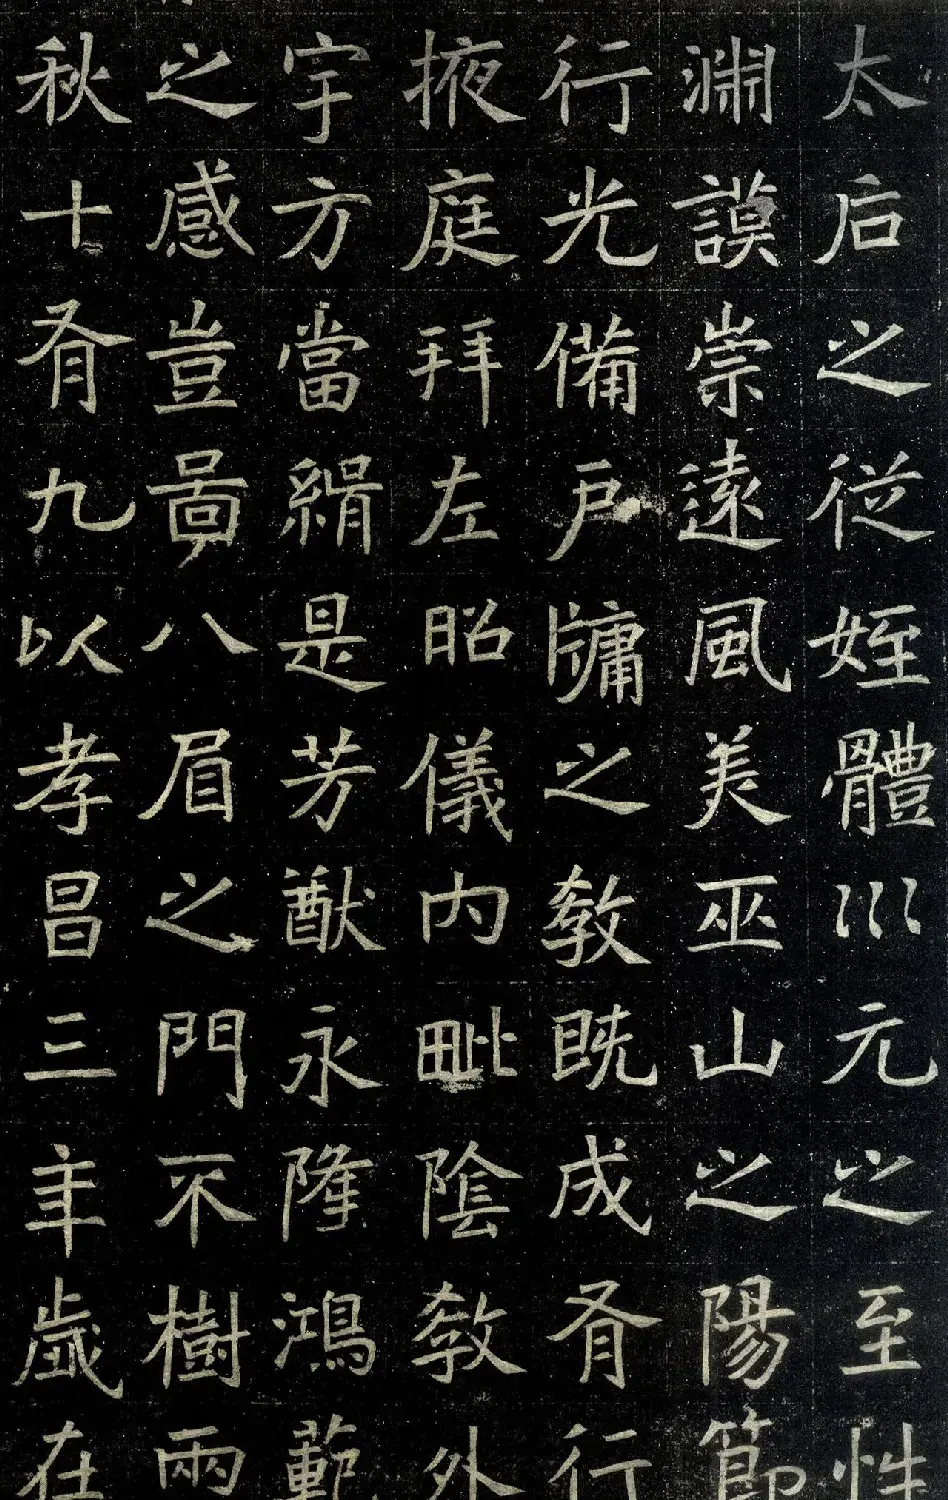 太后之従姪體巛元之至性
淵謨崇遠風美巫山之陽節
行光備戶牗之敎既成有行
掖庭拜左昭儀內毗陰敎外
宇方當緝是芳猷永隆鴻範
之感豈啚八眉之門不樹兩
秋十有九以孝昌三年歲在